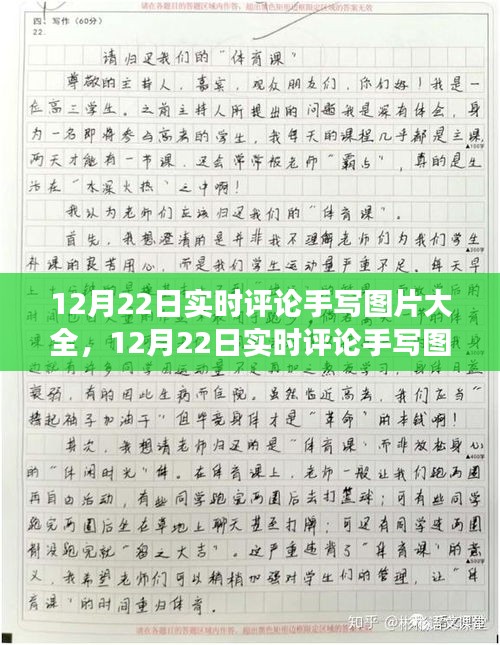 请在各题目的答题区域内作答，超出黑色矩形边框限定区域的答案无效
四、写作（60分）
22.
请归还我们的“体育课”
尊敬的主持人，嘉宾，观众朋友们，你们好！我是一
位高三学生。之前主持人所提出的问题我是深有体会，身
为一名即将参与高考的学生，我每天的课程几乎都是主课，
两天才能有一节课，还会常常被老师“霸占”，真的是生
活在“水深火热”之中啊！
我认为老师们应该归还我们的“体育课”。
首先，我想澄清的是并非我不理解老师们为我们学生
补课的良苦用心，而是我们学生运动量严重不足。每天早
12月22日实时评论手写图片大
全，12月22日实时评论手写图
恶劣，有的因此生病而住院。虽然临近高考，我们应当“
撸起袖子加油干”但毕竟身体才是“革命”的本钱啊！
其次，我想请老师归还的是“体育课”而非放松身心
的“休闲时光”体。在体育课上，老师一般让我们跑两圈
再自由活动，有些同学跑完两圈后去打篮球；可有些同学
跑完两圈后坐在草地上聊天甚至打牌；可还有同学连两圈
都没跑完就“溜之大吉”。这严重违背了“体育课”的意
义，我希望老师们可以稍稍加强对学生们的管理，让“体
育课”的时间重归体育。
知乎 @彬彬语文课堂
请在各题目的答题区域内作答，超出黑色矩形边框限定区域的答案无效